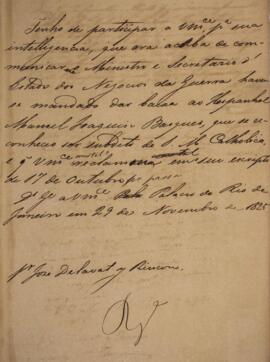 Tenho de participar a Vmce pa sua
intelligencia, que ora acaba de com-
municar o Ministro e Secretario d'
Estado dos Negocios da Guerra have
se mandado dar baixa ao Hespanhol
Manoel Joaquin Basques, que se re-
conheceo ser subdito de S. M. Catholica,
e q Vmce reclamara em seu escripto
de 17 de Outubro po passa
Ds Ge a Vmce Palacio do Rio de
Janeiro em 29 de Novembro de 1825
Sr Jose Delavat y Rincon.